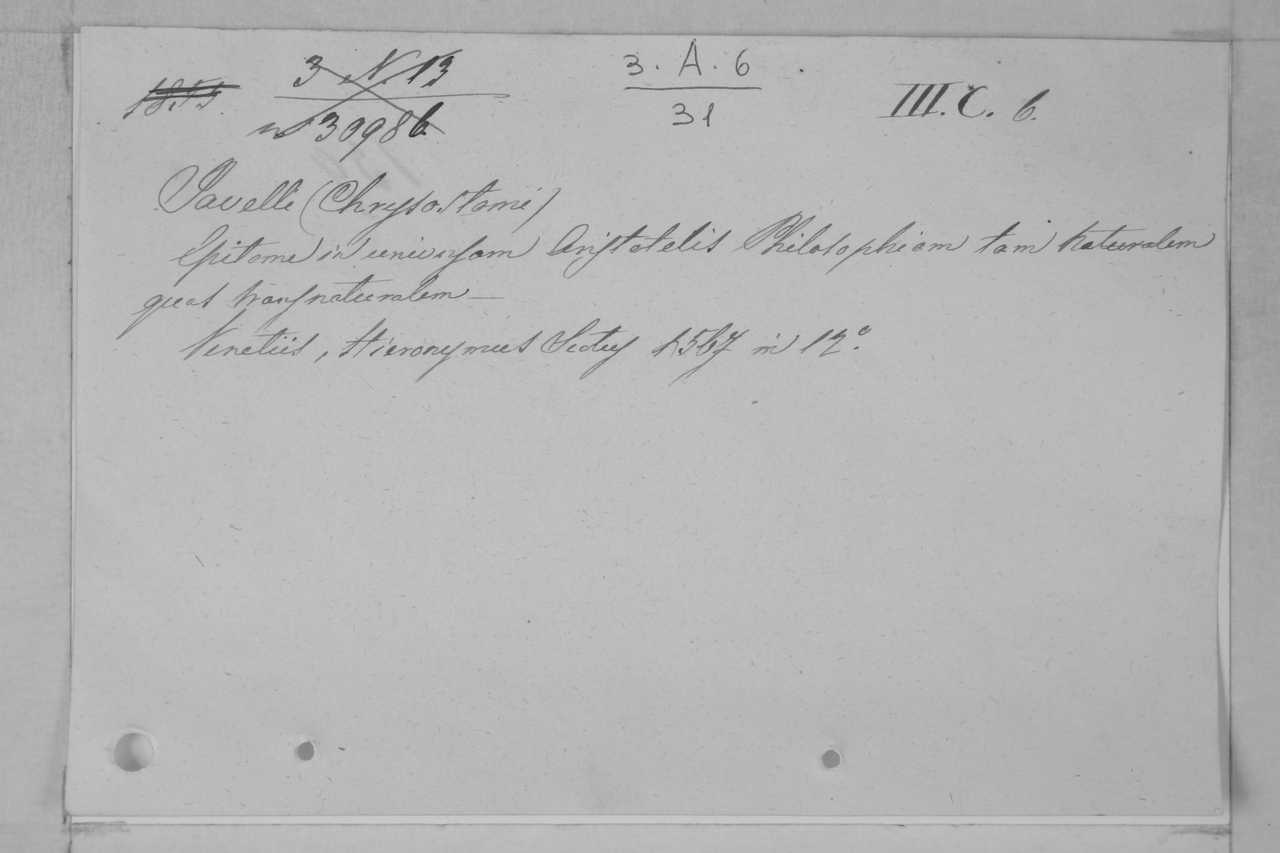 1855 3 N. 13 3. A. 6 III. C. 6.
n° 30986 31
Javelli (Chrysostomi)
Epitome in universam Aristotelis Philosophiam tam naturalem
quas transnaturalem —
Venetiis, Hieronymus Scotus 1567 in 12°.